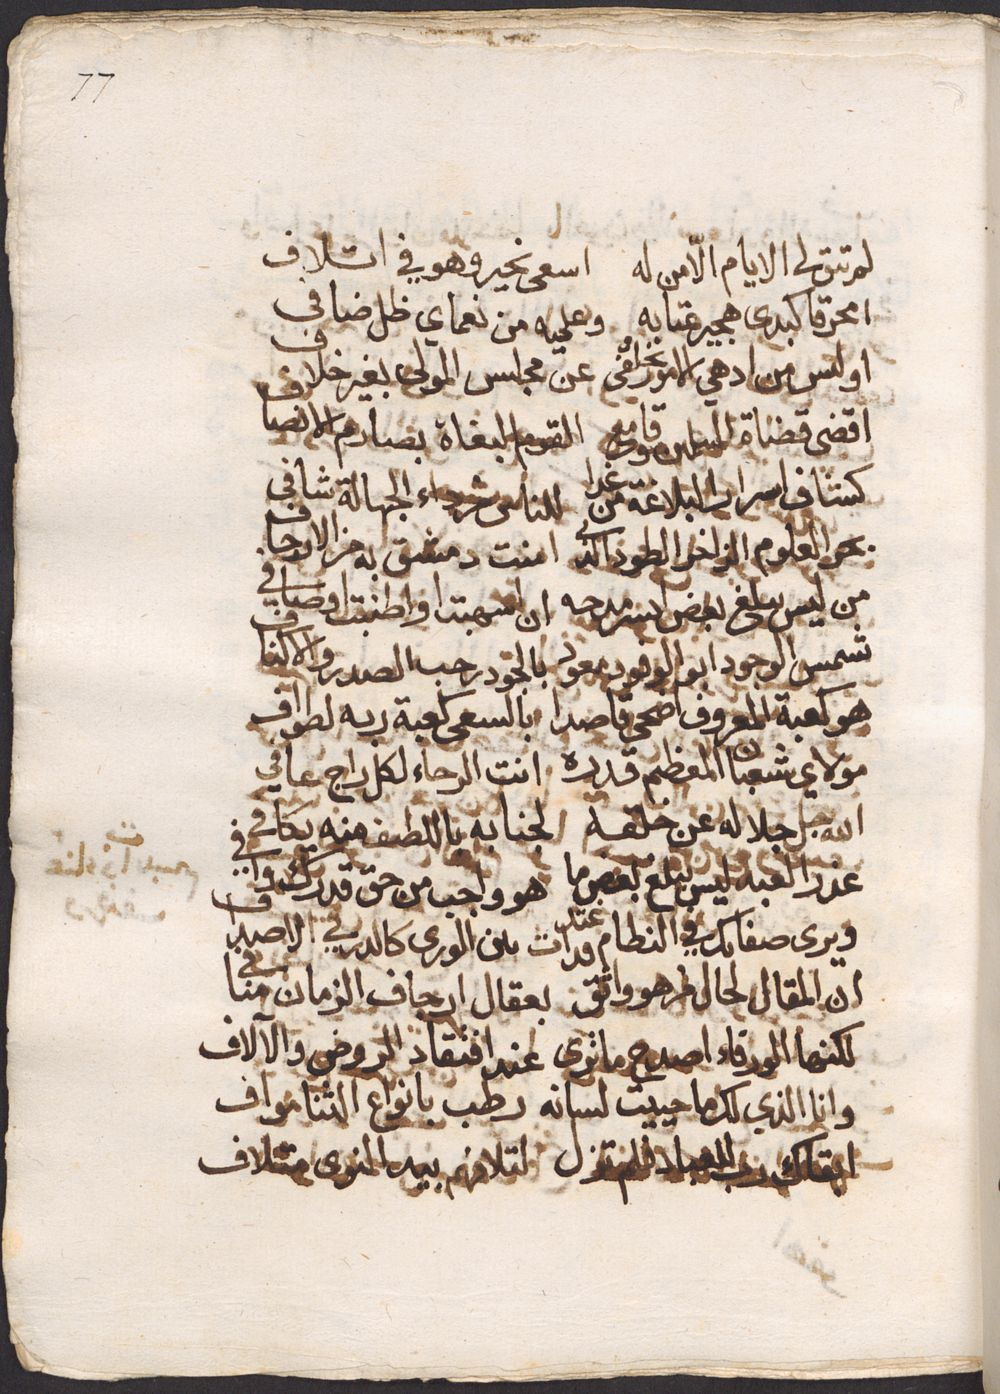 77
لم تبق لي الايام الا من له اسعى بخير وهو في اتلاف
امحرقا كبدى هجير عتابه وعليه من نعماي ظل ضافي
اوليس من ادهي الامور تخلفى عن مجلس المولى بغير خلاف
اقضى قضاة المسلمين وقامع القوم البغاة بصارم الانصاف
كشاف اسرار البلاغة من غدا للناس من داء الجهالة شافي
بحر العلوم الزاخر الطود الذي امنت دمشق به من الارجاف
من ليس يبلغ بعض ايسر مدحه ان اسهبت او اطنبت اوصافي
شمس الوجود ابو الوفود معود بالجود رحب الصدر والاكناف
هو كعبة المعروف اضحى قاصدا بالسعى كعبة ربه لطواف
مولاي شعبان المعظم قدره انت الرجاء لكل راج عافي
الله جل جلاله عن خلقه لجنابه باللطف منه يكافي
عذرا لعبد ليس يبلغ بعض ما هو واجب من حق قدرك وافي
ويرى صفاتك في النظام قدات بين الورى كالدر في الاصداف
ان المقال لحال هو واثق بعقال ارجاف الزمان منافي
لكنها الورقاء اصدح ما ترى عند افتقاد الروض والآلاف
وانا الذي لك ما حييت لسانه رطب بانواع الثنا مواف
ابقاك رب العباد فلم تزل لتلادهم بيد النوى متلاف